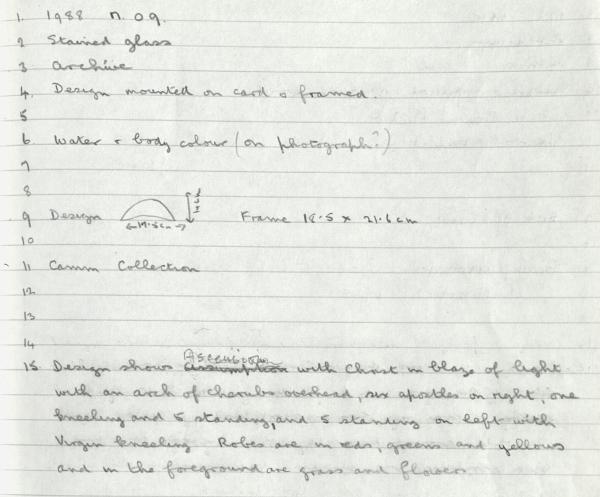 1. 1988 n. 09.
2 Stained glass
3 Archive
4. Design mounted on card & framed.
5
6. Water & body colour (on photograph?)
7
8
9 Design Frame 18.5 x 21.6 cm
10
11 Camm Collection
12
13
14
Ascension
15 Design shows assumption with Christ in blaze of light
with an arch of cherubs overhead, six apostles on right, one
kneeling and 5 standing, and 5 standing on left with
Virgin kneeling Robes are in reds, greens and yellows
and in the foreground are grass and flowers